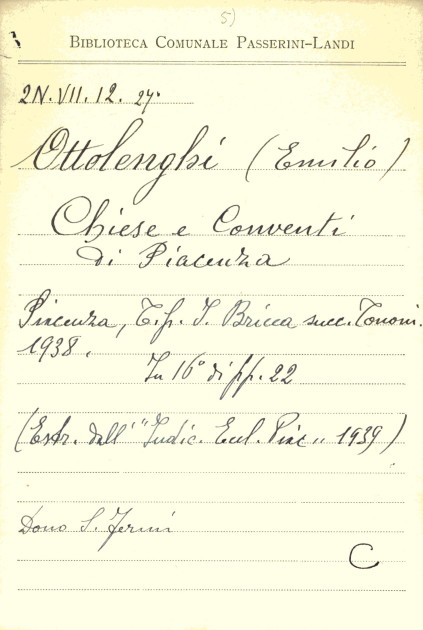 5)
BIBLIOTECA COMUNALE PASSERINI-LANDI
2N.VII.12. 27°
Ottolenghi (Emilio)
Chiese e Conventi
di Piacenza
Piacenza, Tip. Bricca succ. Tononi.
1938.
In 16° di pp. 22
(Estr. dall' "Indic. Eccl. Piac" 1939)
Dono S. Fermi
C